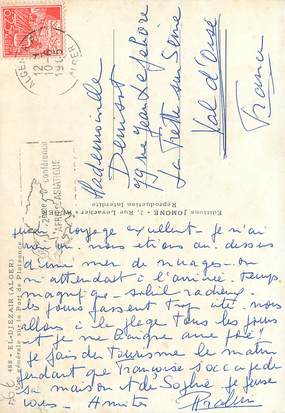 ALGER
12H
10-5
1965
2ème conférence
AFRO-ASIATIQUE
Mademoiselle
Denisot
rue Jean Lefebvre
La Frette sur Seine
Val d'Oise
France
Editions JOMONE - 3, Rue Levacher -
Reproduction Interdite
488 - EL-DJEZAIR (ALGER)
Vue générale sur le Port de Plaisance
voyage excellent - je n'ai
nous étions au dessus
d'une mer de nuages - on
m'attendait à l'arrivée. Temps
magnifique - soleil radieux
les jours passent trop vite nous
allons à la plage tous les jours
et je me baigne
je fais du Tourisme le matin
pendant que Françoise s'occupe de
sa maison et de Sophie. Je pense
vous - Amitiés